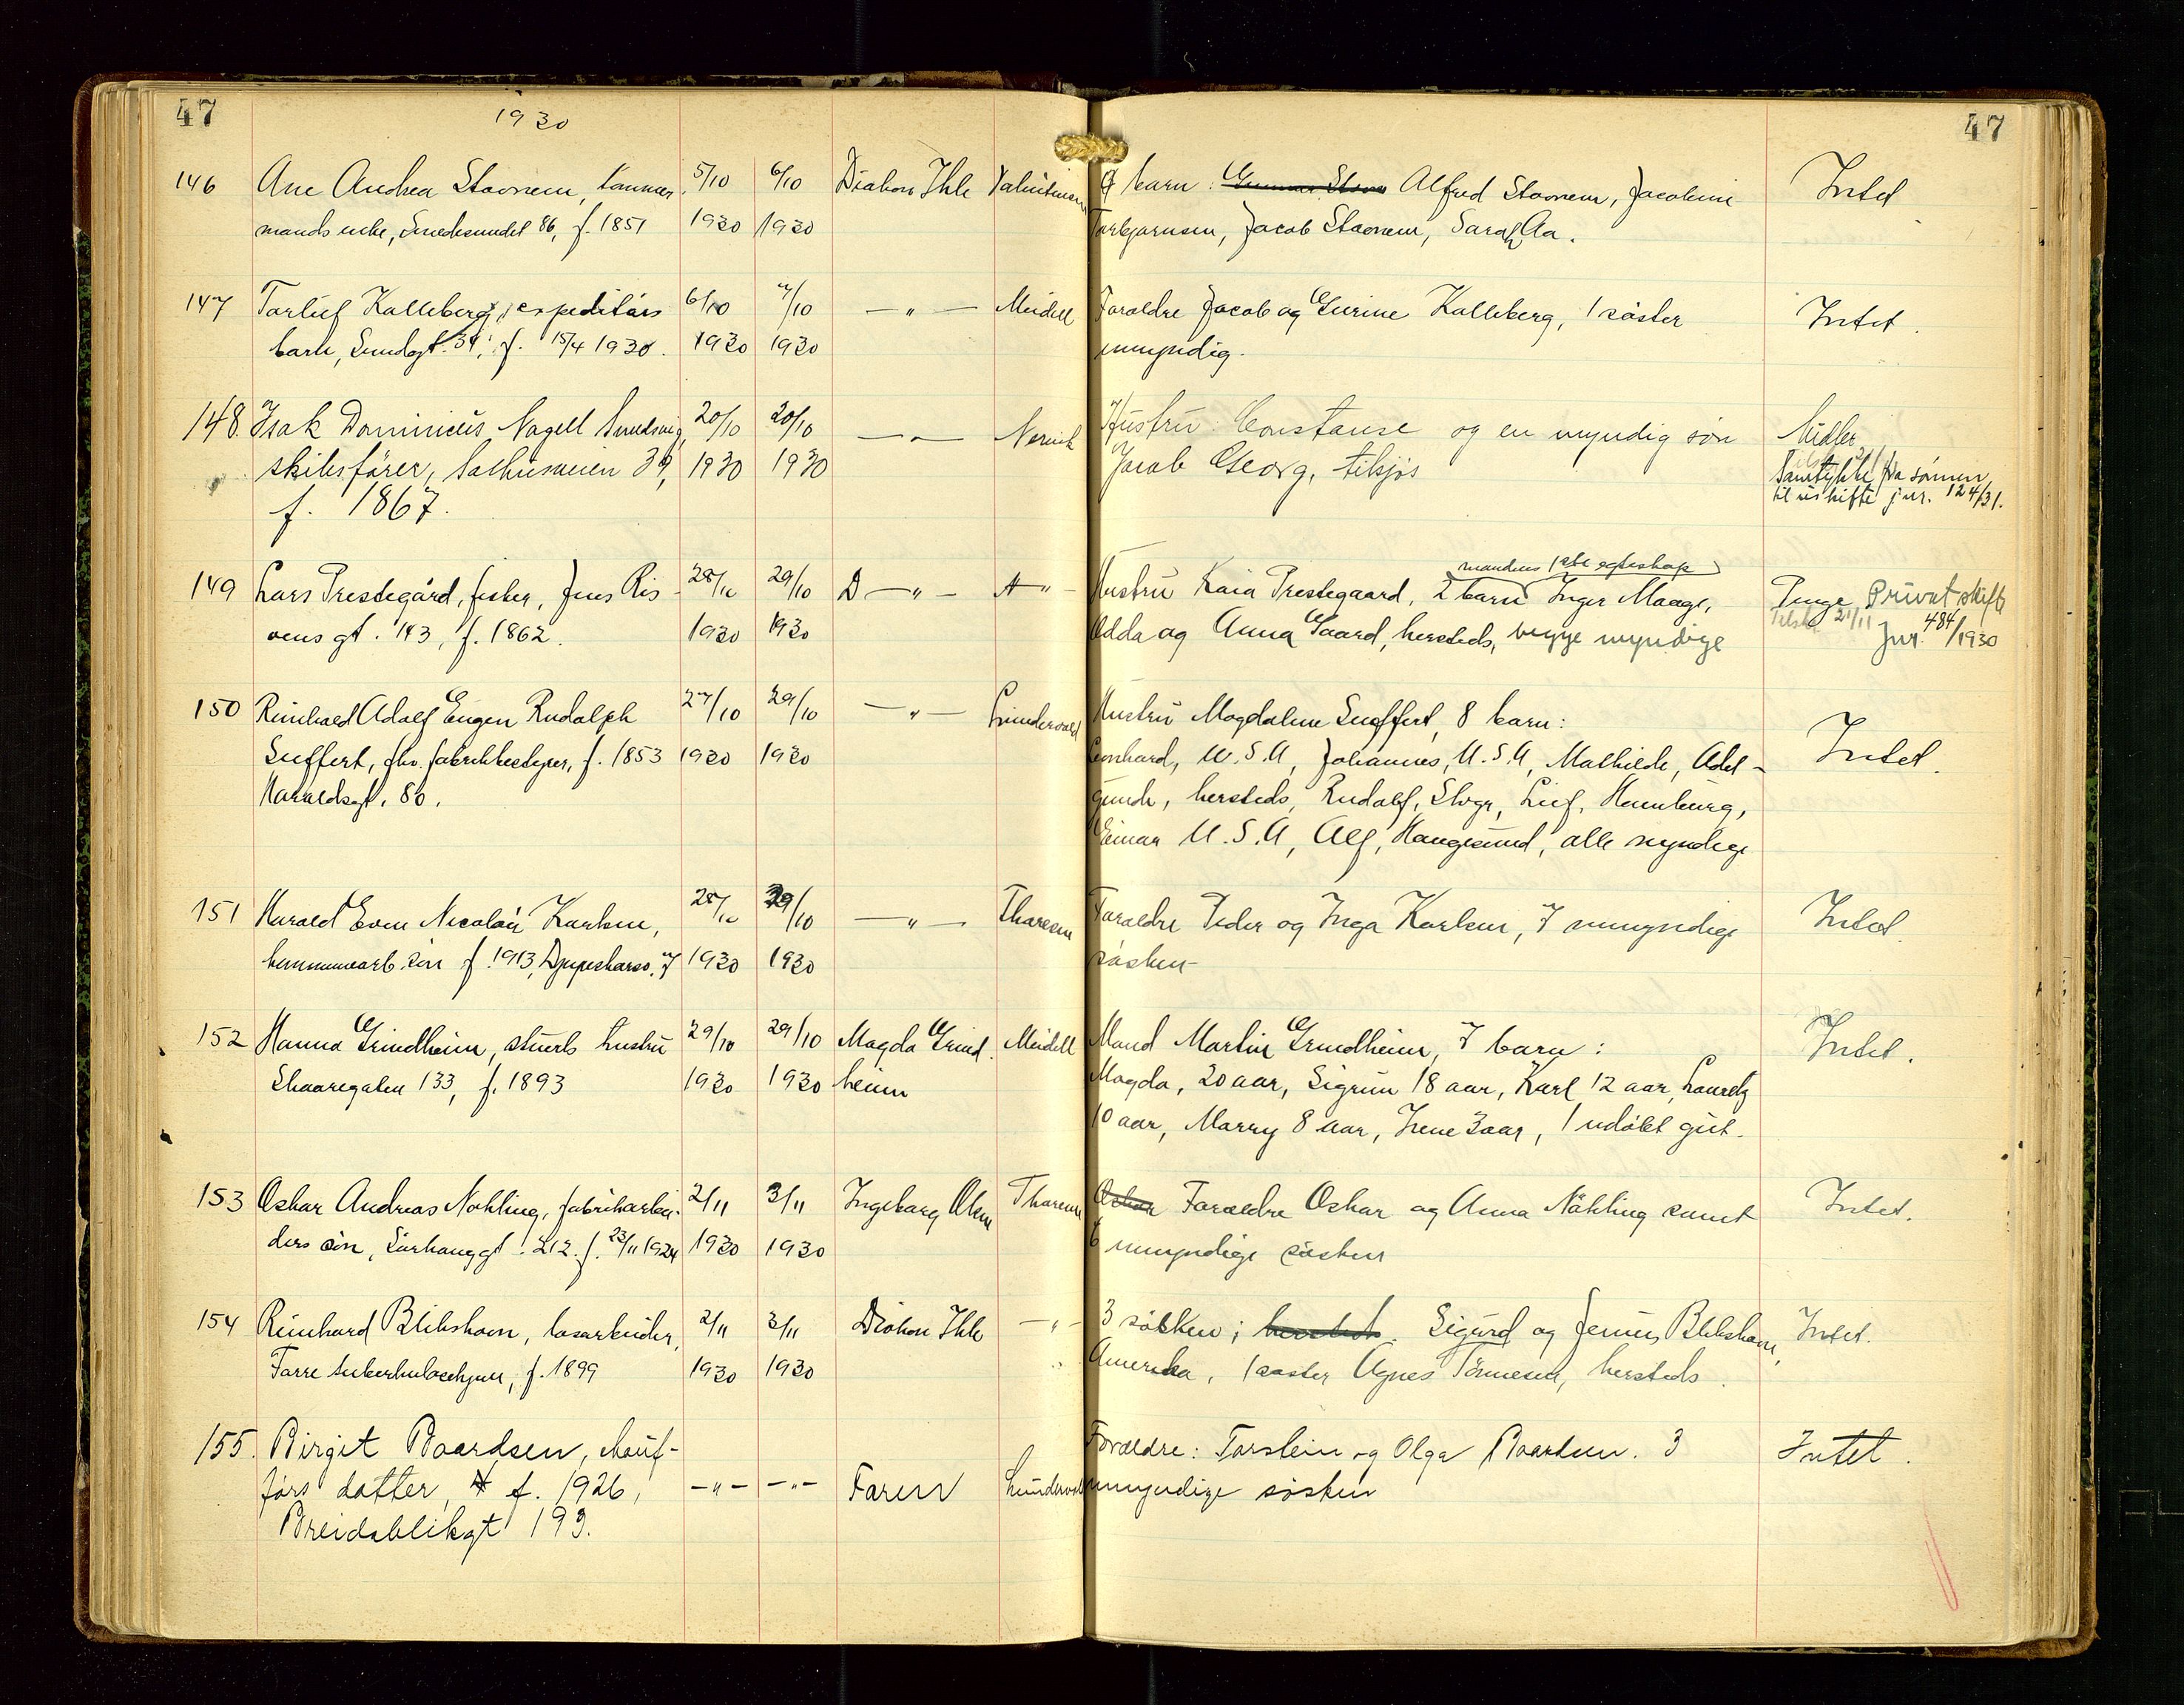 47
1930
47
146 Ane Andrea Stavnem, tømmer 5/10 6/10 Diakon Ihle Valentinsen 4 barn: Alfred Stavnem, Jacobine Intet
mands enke, Smedesundet 86, f. 1851 1930 1930 Torbjørnsen, Jacob Stavnem, Sarah Aa.
147 Torleif Kalleberg, expeditørs 6/10 7/10 — " — Meidell Forældre Jacob og Gurine Kalleberg, 1 søster Intet.
barn, Sundgt. 39, f. 15/4 1930. 1930 1930 umyndig.
148. Isak Dominicus Nagell 20/10 20/10 — " — Hustru Constanse og en myndig søn Midler
skibsfører, 39, 1930 1930 Jacob Georg, tilsjøs Samtykke fra sønnen
f. 1867. til uskifte jnr. 124/31.
mandens 1ste egteskap
149 Lars Prestegård, fisker, Jens Ris- 28/10 29/10 D — " — " Hustru Kaia Prestegaard, 2 barn Inger Maage, Penge Privat skifte
øens gt. 143, f. 1862. 1930 1930 Odda og Anna Gaard, hersteds, begge myndige 21/11 Jnr. 484/1930
150 Reinhold Adolf Eugen Rudolph 27/10 29/10 — " — Lundervold Hustru Magdalene Suffert, 8 barn:
Suffert, fhv. fabrikbestyrer, f. 1853 1930 1930 Leonhard, U.S.A, Johannes, U.S.A, Mathilde, Adel- Intet.
Haraldsgt. 80. gunde, hersteds, Rudolf, Stvgr, Leif, Hamburg,
Einar U.S.A, Alf, Haugesund, alle myndige
151 Harald Even Nicolai Karlsen, 28/10 29/10 — " — Thoresen Forældre Peder og Inga Karlsen, 7 umyndige Intet.
kommunearb. søn f. 1913, 7 1930 1930 søsken
152 Hanna Grindheim, stuerts hustru 29/10 29/10 Magda Grind- Meidell Mand Martin Grindheim, 7 barn: Intet.
Skaaregaten 133, f. 1893 1930 1930 heim Magda, 20 aar, Sigrun 18 aar, Karl 12 aar, Lauritz
10 aar, Marry 8 aar, Irene 3 aar, 1 udøbt gut.
153 Oskar Andreas Nohling, fabrikarbei- 2/11 3/11 Ingeborg Olsen Thoresen Oskar Forældre Oskar og Anna Nohling samt Intet.
ders søn, Sørhauggt. 212. f. 23/11 1924 1930 1930 6 umyndige søsken
154 Reinhard Blikshavn, løsarbeider, 2/11 3/11 Diakon Ihle — " — 3 søsken; hersteds. Sigurd og Jenus Blikshavn, Intet.
Førre tuberkulosehjem, f. 1899 1930 1930 Amerika, 1 søster Agnes Tønnesen, hersteds.
155. Birgit Baardsen, chauf- Forældre: Torstein og Olga Baardsen. 3 Intet.
førs datter, f. 1926, — " — — " — Faren Lundervold umyndige søsken
Breidablikgt 193.